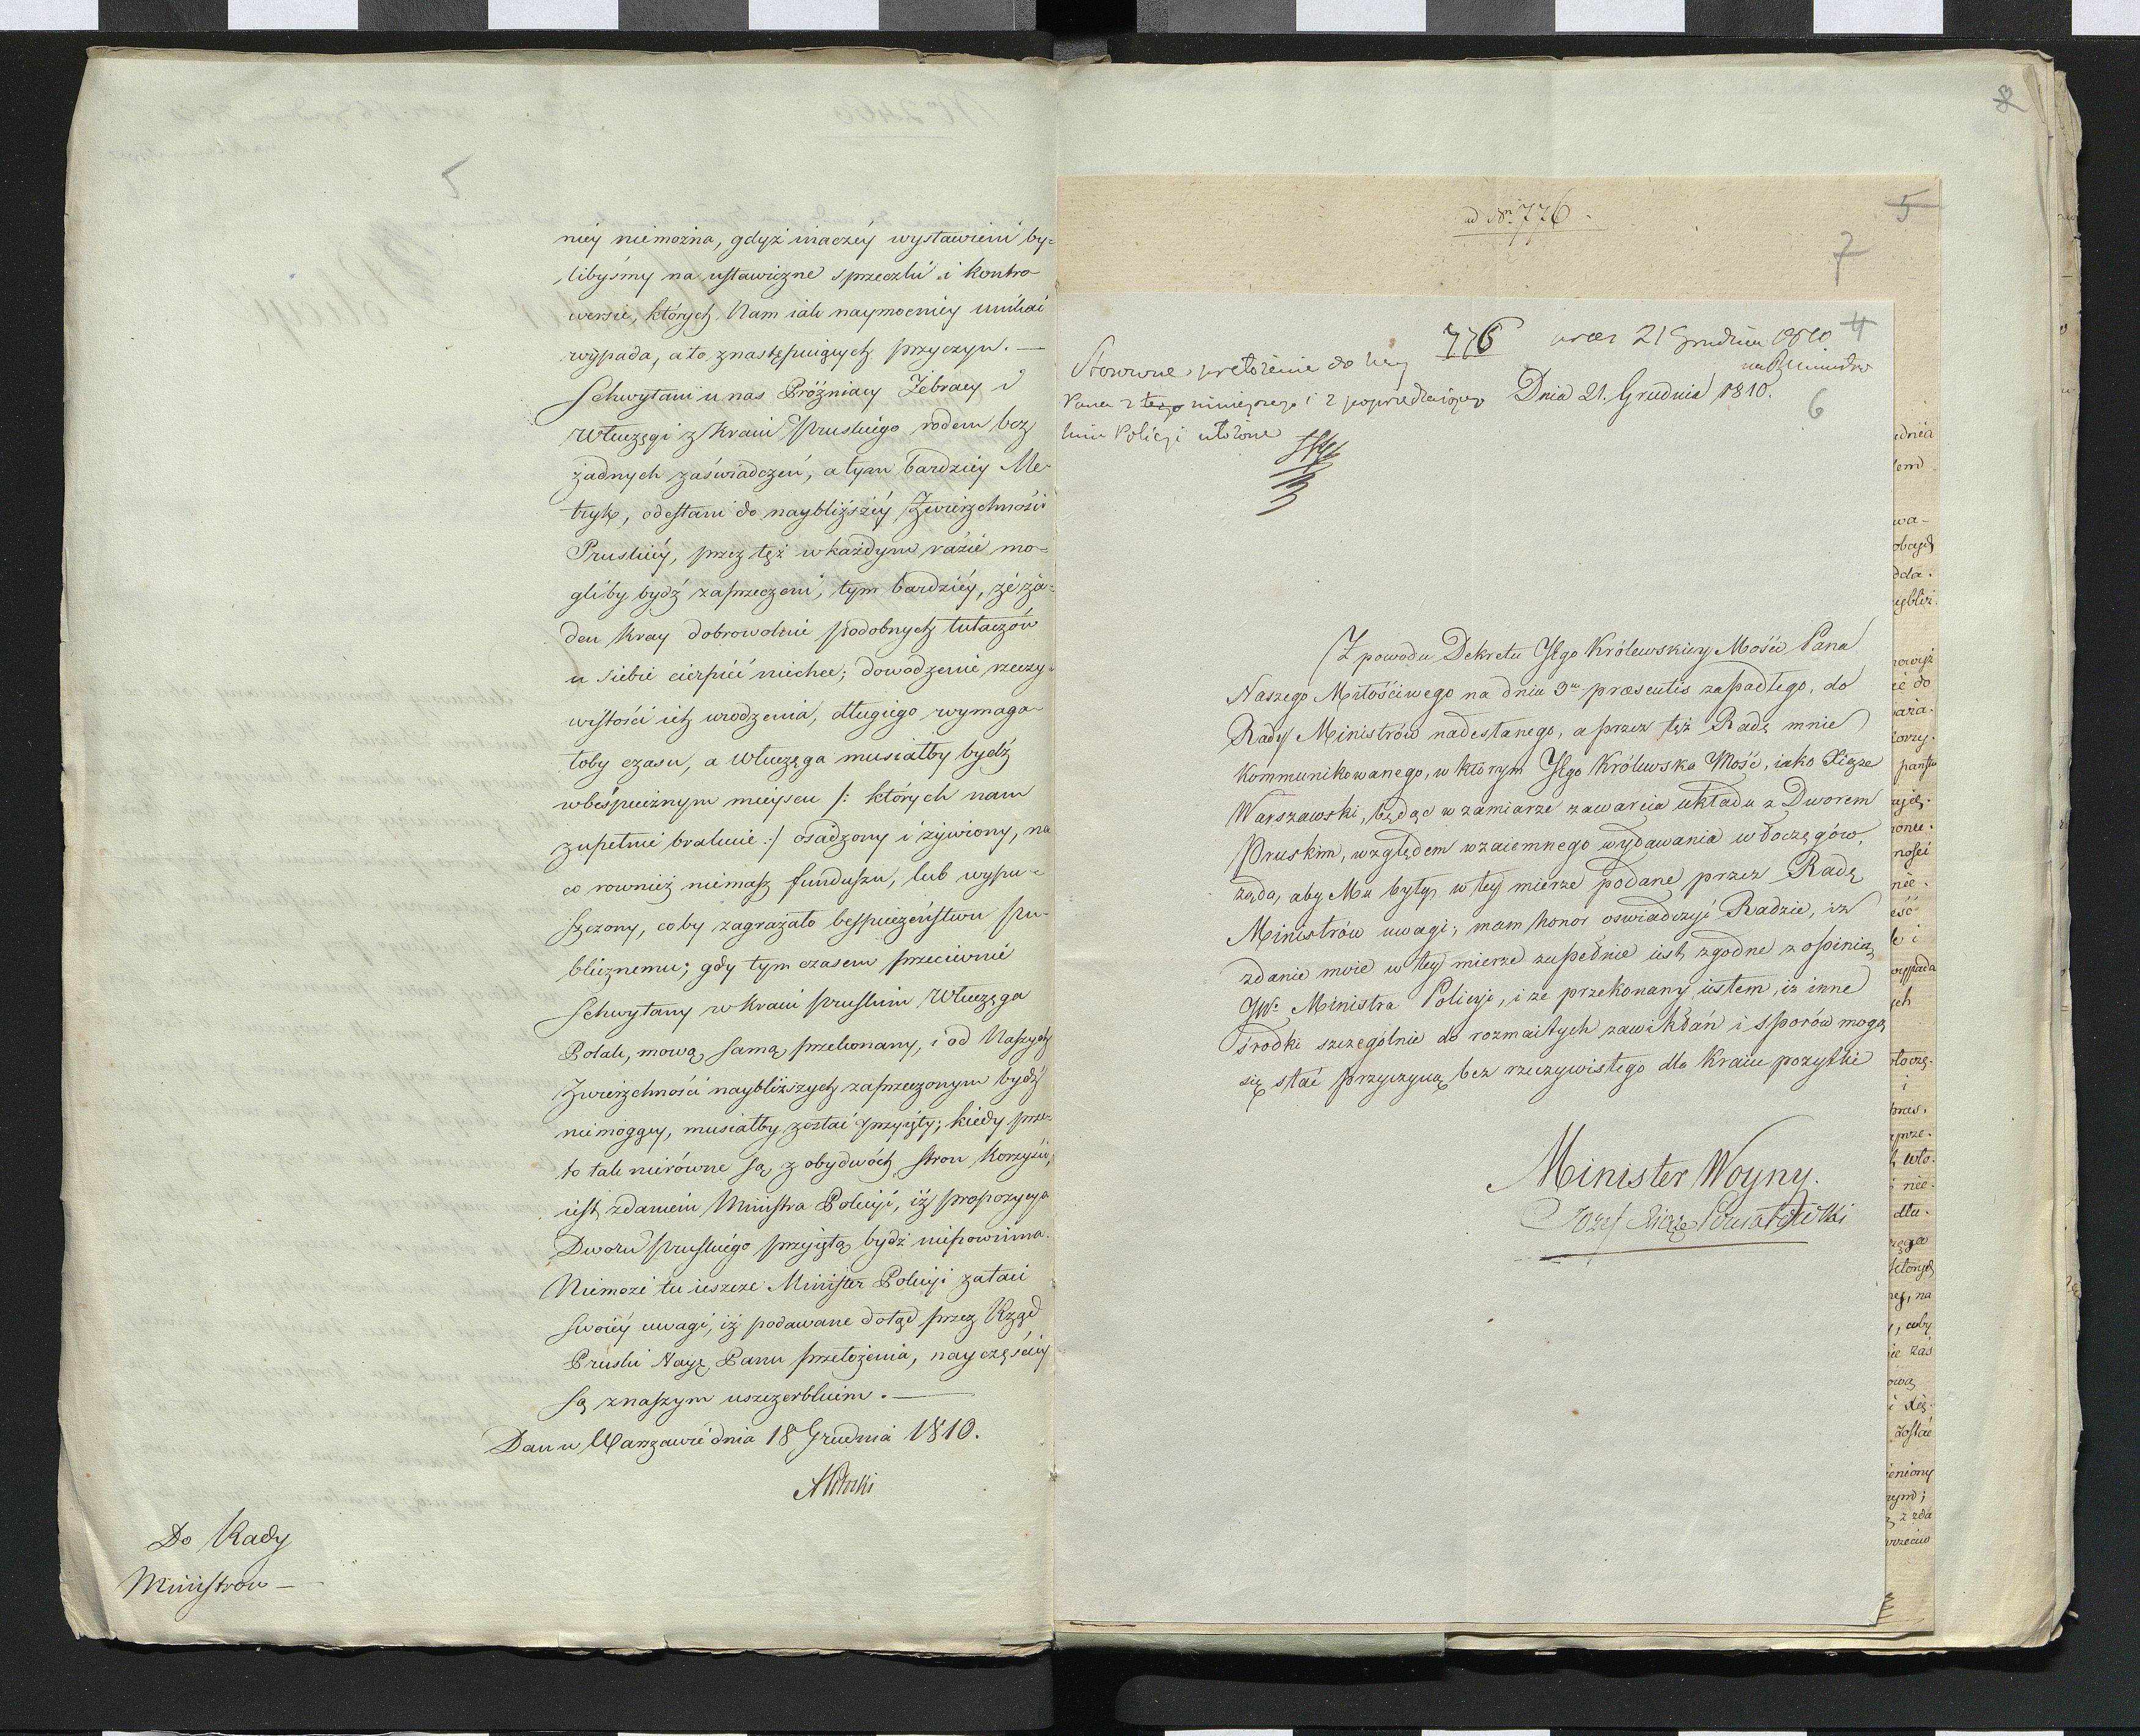 5
niey niemożna, gdyż inaczéy wystawieni by=
libyśmy na ustawiczne sprzeczki i kontro-
wersie, których Nam iak naymocniey unikać
wypada, a to, z następuiących przyczyn. —
Schwytani u nas Próżniacy Żebracy i
Włuczęgi z Kraiu Pruskiego rodem bez
żadnych zaświadczeń, a tym bardziéy Me-
tryk, odesłani do naybliższéy Zwierzchności
Pruskiéy, przez tęż w każdym razie mo=
gliby bydź zaprzeczeni, tym bardziéy, że ża=
den Kray dobrowolnie podobnych tułaczów
u siebie cierpieć niechce; dowodzenie rzeczy-
wistości ich urodzenia, długiego wymaga-
łoby czasu, a Włuczęga musiałby bydź
w bespiecznym mieyscu /: których nam
zupełnie brakuie :/ osadzony i żywiony, na
co rownież niemasz funduszu, lub wypu-
szczony, coby zagrażało bespieczeństwu pu-
blicznemu; gdy tym czasem przeciwnie
Schwytany w Kraiu pruskim Włuczęga
Polak, mową samą przekonany, i od Naszych
Zwierzchności naybliższych zaprzeczonym bydź
niemogący, musiałby zostać przyięty; kiedy prze-
to tak nierówne są z obydwóch stron korzyści,
iest zdaniem Ministra Policyi, iż propozycya
Dworu Pruskiego przyiętą bydź niepowinna.
Niemoże tu ieszcze Minister Policyi zataić
swoiéy uwagi, iż podawane dotąd przez Rząd
Pruski Nayj. Panu przełożenia, nayczęściéy
są z naszym uszczerbkiem. —
Dan w Warszawie dnia 18 Grudnia 1810.
APotocki
Do Rady
Ministrow —
ad Nr 776.
5
7
776 prez 21 Grudnia 1810
4
na R Ministrów
Stosowne przełożenie do Nay
Pana z tego ninieyszego i z poprzedzaiącego
Dnia 21. Grudnia 1810.
6
Policyi ułożone
Z powodu Dekretu JEgo Królewskiey Mości Pana
Naszego Miłościwego na dniu 3m præsentis zapadłego, do
Rady Ministrów nadesłanego, a przez tęż Radę mnie
Kommunikowanego, w którym JEgo Królewska Mość, iako Xiąże
Warszawski, będąc w zamiarze zawarcia układu z Dworem
Pruskim, względem wzaiemnego wydawania włoczęgów,
żąda, aby Mu były w tey mierze podane przez Radę
Ministrów uwagi; mam honor oswiadczyć Radzie, iż
zdanie moie w tey mierze zupełnie iest zgodne z opinią
JW. Ministra Policyi, i że przekonany iestem, iż inne
środki szczególnie do rozmaitych zawikłań i sporów mogą
się stać przyczyną bez rzeczywistego dla Kraiu pożytku
Minister Woyny.
Jozef Xiąże Poniatowski